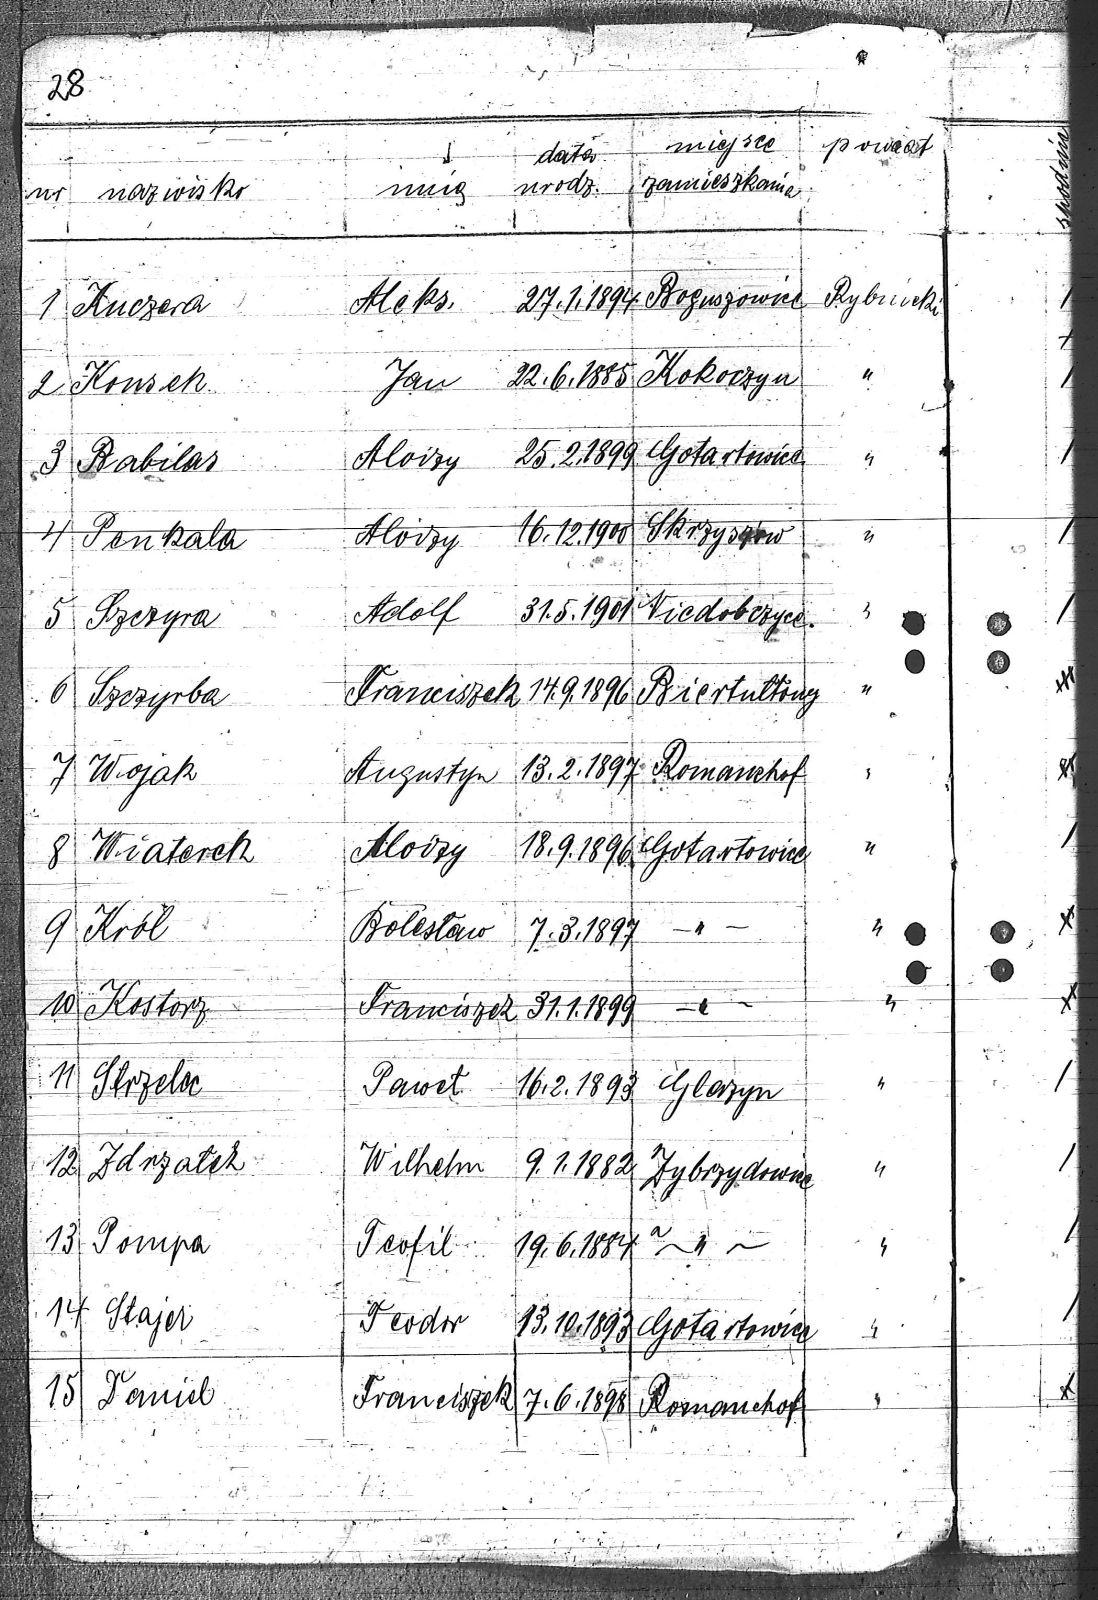 28
nr nazwisko imię data urodz. miejsce zamieszkania powiat
1 Kuczera Aleks. 27.1.1894 Boguszowice Rybnicki
2 Konsek Jan 22.6.1885 Kokoczyn "
3 Babilas Aloizy 25.2.1899 Gotartowice "
4 Penkala Aloizy 16.12.1900 Skrzyszów "
5 Szczyra Adolf 31.5.1901 Niedobczyce. "
6 Szczyrba Franciszek 14.9.1896 Biertułtowy "
7 Wojak Augustyn 13.2.1897 Romanshof "
8 Wiaterek Aloizy 18.9.1896 Gotartowice "
9 Król Bolesław 7.3.1897 – " – "
10 Kostorz Franciszek 31.1.1899 – " – "
11 Strzelec Paweł 16.2.1893 Glozyn "
12 Zdrzałek Wilhelm 9.1.1882 Zybrzydowice "
13 Pompa Teofil 19.6.1884 – " – "
14 Stajer Teodor 13.10.1893 Gotartowice "
15 Daniel Franciszek 7.6.1898 Romanshof "